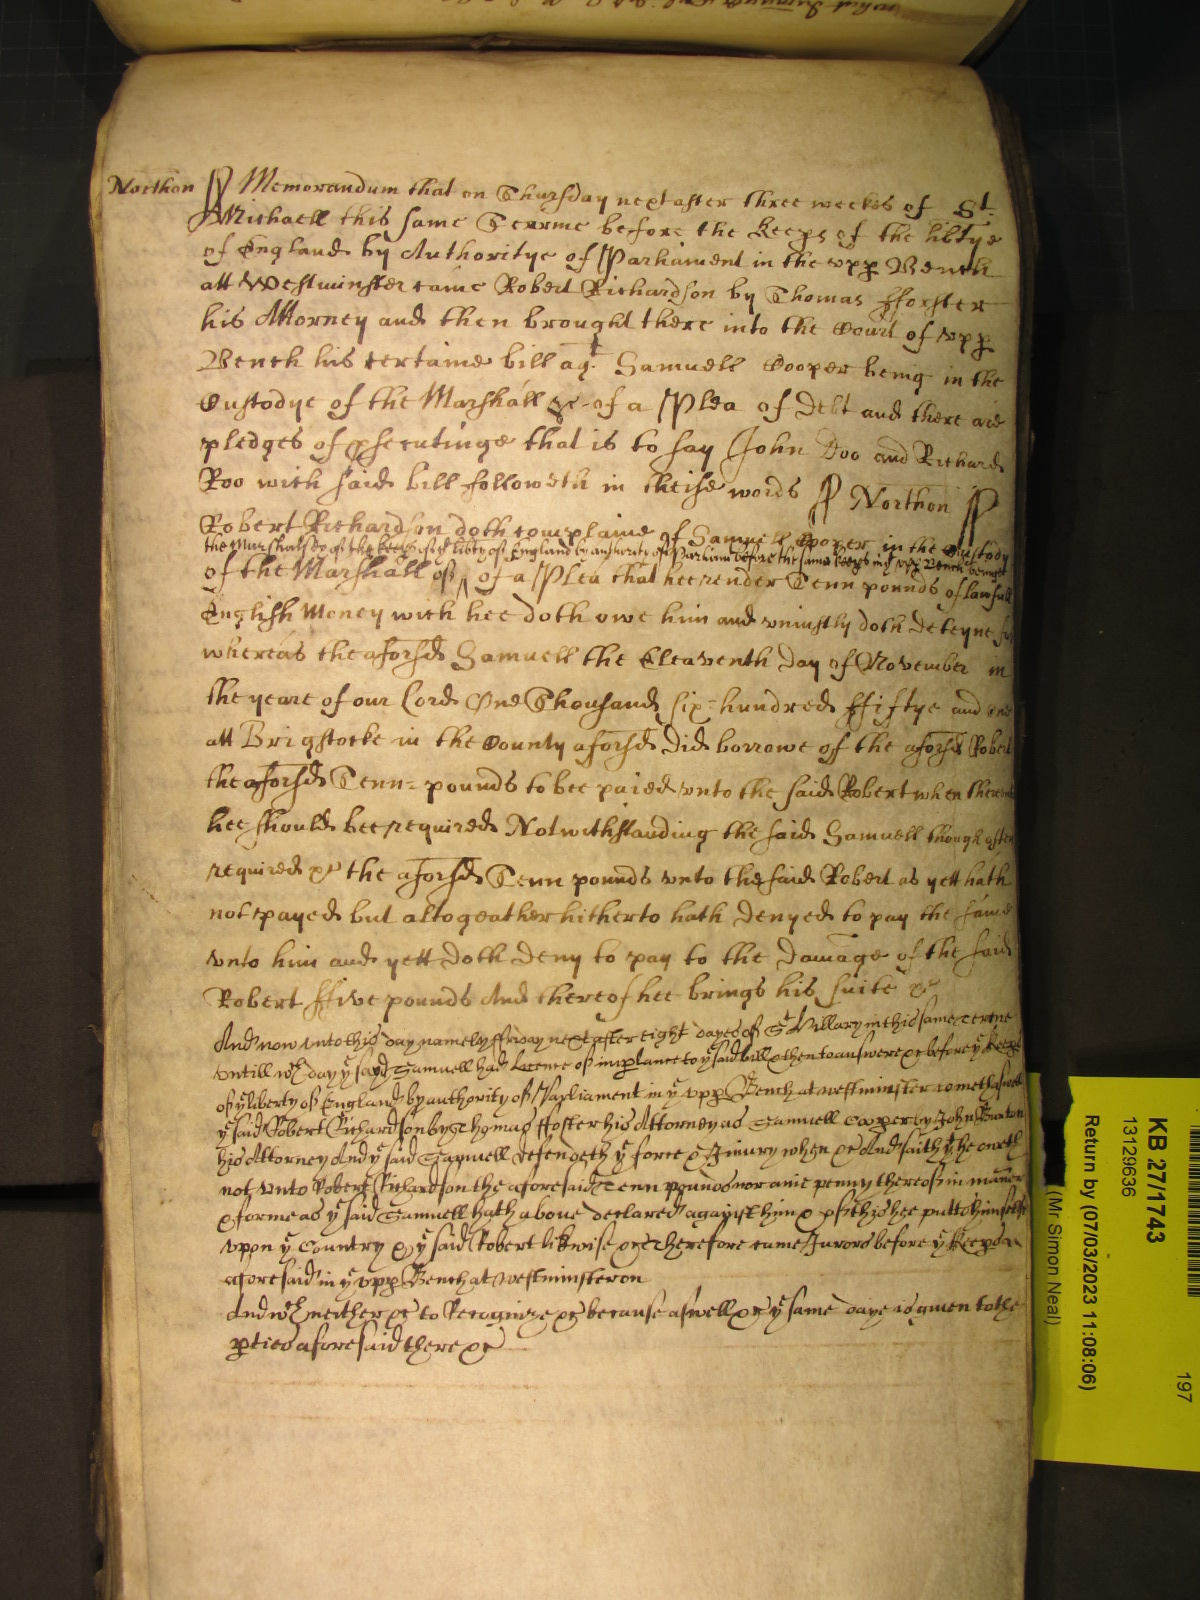 Northon ss Memorandum that on Thursday next after three weekes of St.
Michaell this same Tearme before the Keeps of the libtye
of England by Authoritye of Parliament in the upp Bench
att Westminster came Robert Richardson by Thomas fforster
his Attorney and then brought there into the Court of upp
Bench his certaine bill agt. Samuell Cooper being in the
Custodye of the Marshall &c of a Plea of debt and there are
pledges of psecutinge that is to say John Doo and Richard
Roo wich said bill followeth in theise words ss Northon ss
Robert Richardson doth complaine of Samuell Cooper in the Custody
the Marshalsey of the Keeps of ye libty of England by authority of Parliamt before the same Keeps in ye upp Bench beinge
of the Marshall of ^ of a Plea that hee render Tenn pounds of lawfull
English Money wich hee doth owe him and uniustly doth deteyne for
whereas the aforsd Samuell the Eleaventh day of November in
the yeare of our Lord One Thousand six-hundred ffiftye and one
att Brigstocke in the County aforsd did borrowe of the aforsd Robert
the aforsd Tenn= pounds to bee paied unto the said Robert when thereunto
hee should bee required Notwithstanding the said Samuell though often
required &c the aforsd Tenn pounds unto the said Robert as yett hath
not payed but altogeather hitherto hath denyed to pay the same
unto him and yett doth deny to pay to the damage of the said
Robert ffive pounds And thereof hee brings his suite &c
And now unto this day namely ffriday next after eight dayes of St Hillary in this same Terme
untill wch day ye sayd Samuell had Licence of implance to ye said bill & then to answere &c before ye Keeps
of ye liberty of England by authority of Parliament in ye upp Bench at westminster cometh aswell
ye said Robert Richardson by Thomas ffoster his Attorney as Samuell Cooper by John Burton
his Attorney And ye said Samuell defendeth ye force & Iniury when &c And saith yt he oweth
not unto Robert Richardson the aforesaid Tenn pounds nor anie penny thereof in maner
& forme as ye said Samuell hath above declared against him & of this hee putts himselfe
upon ye Country & ye said Robert likwise &c Therefore came Jurors before ye Keeps
aforesaid in ye upp Bench at westminster on
And wch neither &c to Recognize &c because aswell &c ye same daye is given to the
pties aforesaid there &c
KB 27/1743
13129636
Return by (07/03/2023 11:08:06)
(Mr Simon Neal)
197